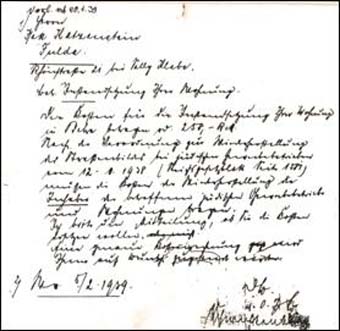 1) Herrn
Isak Katzenstein
Fulda.
Schönstraße 21 bei
betr. Instandsetzung Ihrer Wohnung.
Die Kosten für die Instandsetzung Ihrer Wohnung
in Bebra betragen rd. 250,- RM
Nach der Verordnung zur Wiederherstellung
des Straßenbildes bei jüdischen Gewerbebetrieben
vom 12.11.1938 (Reichsgesetzblatt Seite 1581)
müssen die Kosten der Wiederherstellung die
Inhaber der betroffenen jüdischen Gewerbebetriebe
und Wohnungen tragen.
Ich bitte um Mitteilung, ob Sie die Kosten
wollen.
Eine genaue Kostenrechnung wird
Ihnen auf Wunsch werden.
2) 5/2. 1939.